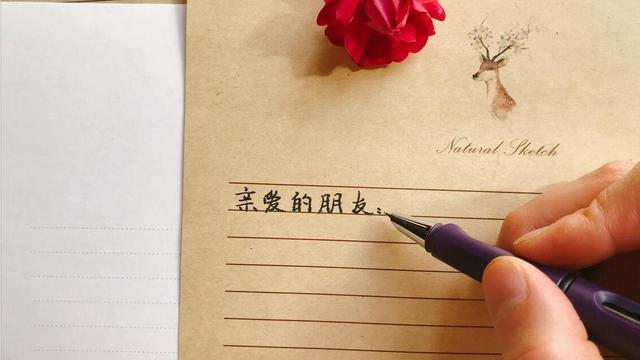 Natural Sketch
亲爱的朋友：